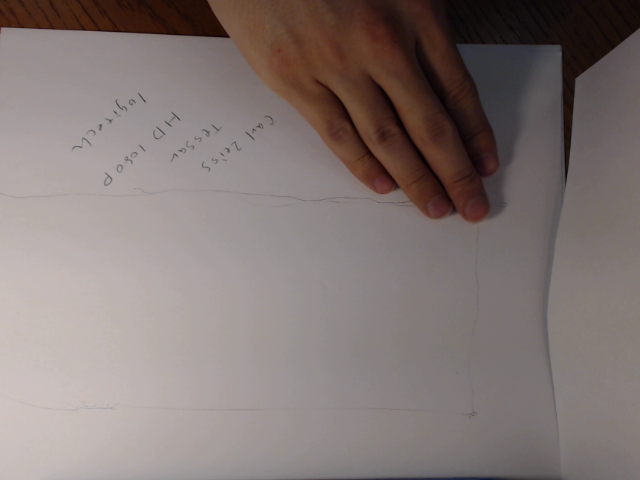 Carl Zeiss
Tessar
HD 1080P
logitech